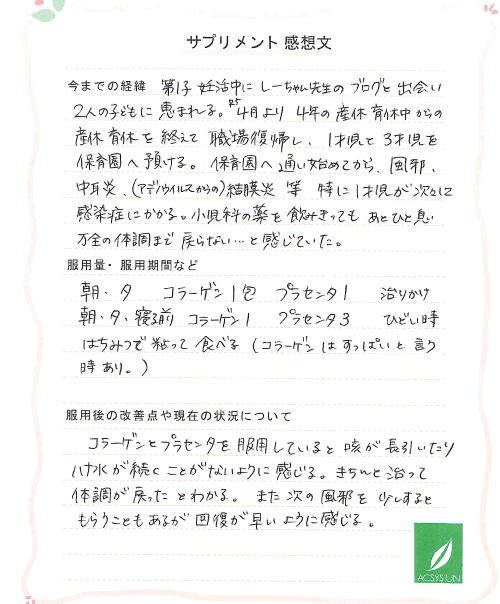 サプリメント 感想文
今までの経緯 第1子 妊活中に しーちゃん先生の ブログと 出会い
2人の子どもに 恵まれる。R5 4月より 4年の 産休 育休中 からの
産休 育休 を 終えて 職場復帰し、1才児と 3才児を
保育園へ 預ける。 保育園へ 通い始めてから、風邪、
中耳炎、(アデノウイルスからの) 結膜炎 等 特に 1才児が 次々に
感染症に かかる。小児科の 薬を 飲みきっても あと ひと息
万全の 体調まで 戻らない…と 感じていた。
服用量・服用期間など
朝・夕 コラーゲン 1包 プラセンタ 1 治りかけ
朝・夕、寝る前 コラーゲン 1 プラセンタ 3 ひどい時
はちみつで 粘って 食べる (コラーゲン は すっぱいと 言う
時あり。)
服用後の改善点や現在の状況について
コラーゲンと プラセンタを 服用していると 咳が 長引いたり
ハナ水が 続くことがないように 感じる。きちんと 治って
体調が 戻った とわかる。 また 次の 風邪を 少しすると
もらうことも あるが 回復が 早いように 感じる。
ACSYSUN